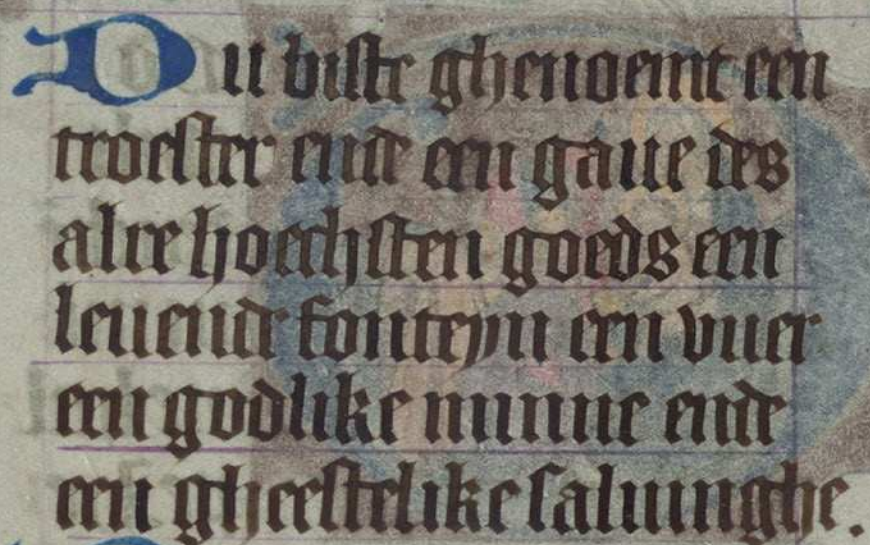 Du biste ghenoemt een
troester ende een gaue des
alre hoechsten goeds een
leuende fonteyn een vuer
een godlike minne ende
een gheestelike saluinghe.